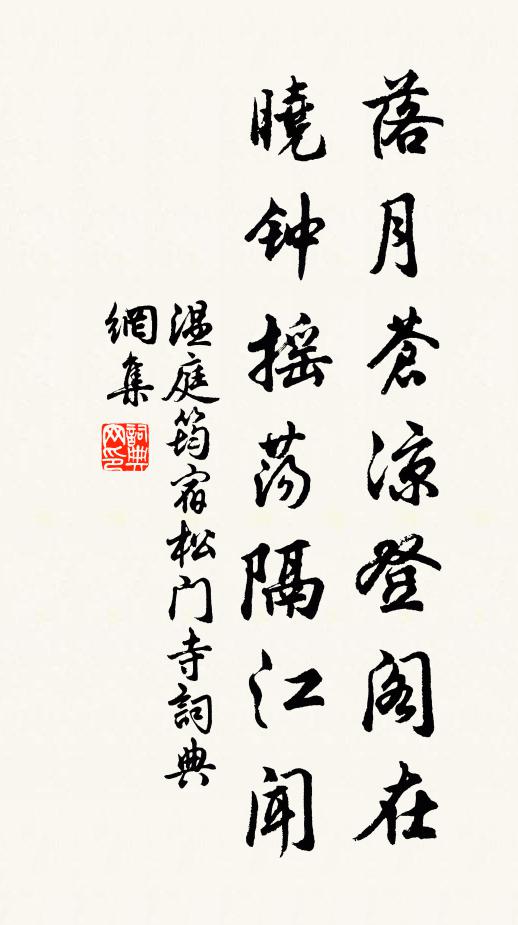 落月蒼涼登阁在
曉钟摇荡隔江闻
温庭筠宿松门寺詞典
網集
詞典
网印